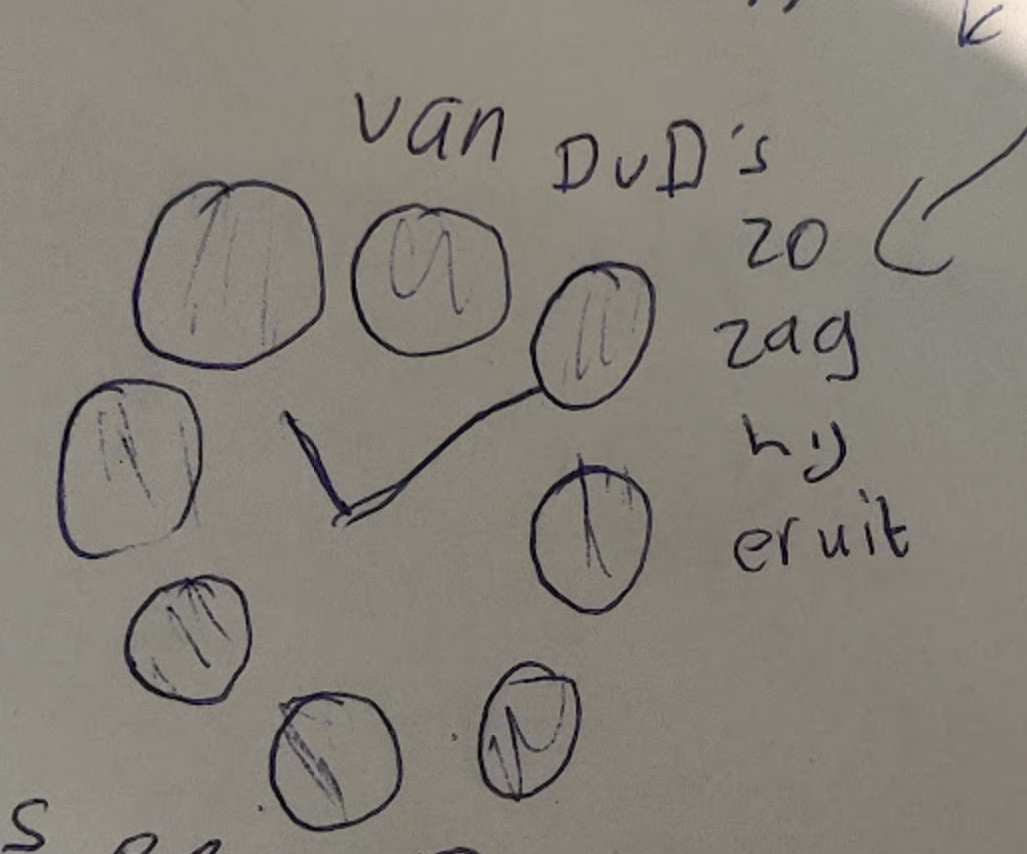 van DvD's
zo
zag
hij
eruit